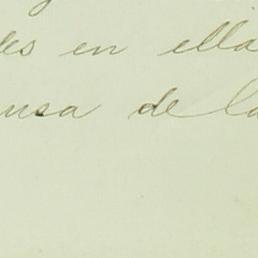 les en ella
usa de la